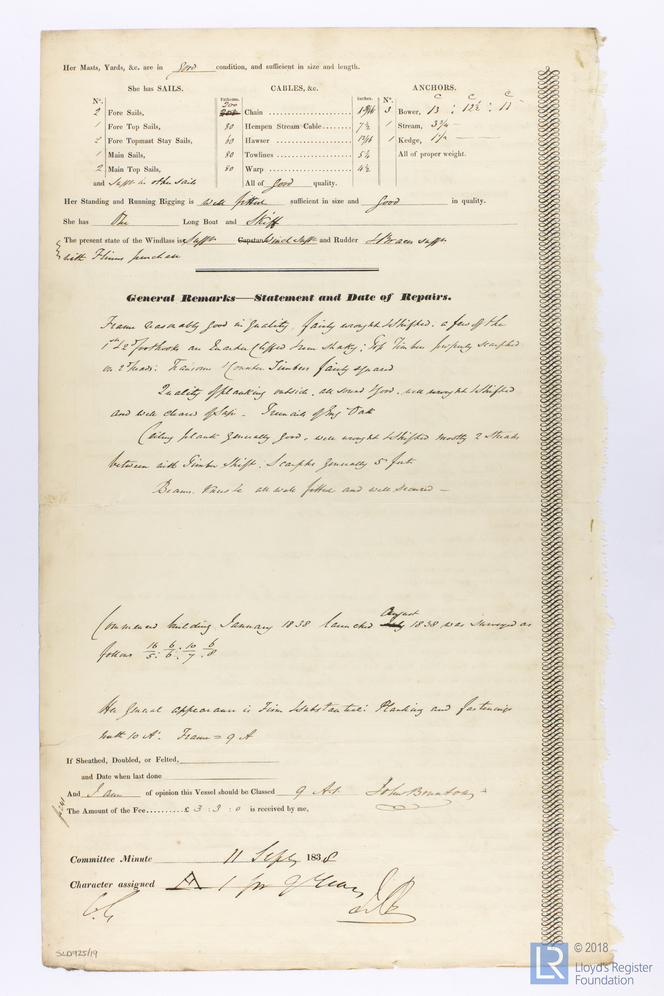 Her Masts, Yards, &c. are in good condition, and sufficient in size and length.
She has SAILS. CABLES, &c. ANCHORS.
N°. Fathoms. Inches. N°. C C C
2 Fore Sails, 200 Chain 3 Bower, 13 : 12½ : 11
1 Fore Top Sails, 80 Hempen Stream Cable 7½ 1 Stream, 3¾
2 Fore Topmast Stay Sails, 60 Hawser 1 Kedge,
1 Main Sails, 80 Towlines 5½ All of proper weight.
2 Main Top Sails, 80 Warp 4½
and Sufft in other sails All of good quality.
Her Standing and Running Rigging is well fitted sufficient in size and good in quality.
She has One Long Boat and Skiff
The present state of the Windlass is Sufft Capstan Winch Sufft and Rudder sufft
with purchase
General Remarks—Statement and Date of Repairs.
Frame reasonably good in Quality, fairly wrought & shifted. a few of the
1st & 2d Foothooks an Chipped from ; Top Timbers properly scarphed
on 2d Heads: Transoms & Counter Timbers fairly squared
Quality of planking outside. all sound & good. well wrought & shifted
and well cleared of sap - Treenails of Eng. Oak
Ceiling plank generally good, well wrought & shifted mostly 2 Strakes
between each Timber Shift. Scarphs generally 5 feet
Beams. Knees &c all well fitted and well secured —
August
Commenced building January 1838 launched July 1838 was surveyed as
follows 16/5 : 6/6 . 10/7 . 6/8
Her general appearance is Firm & Substantial: Planking and fastenings
10 A: Frame = 9 A
If Sheathed, Doubled, or Felted,
and Date when last done
And I am of opinion this Vessel should be Classed 9 A1 John Brunton
The Amount of the Fee £ 3 : 3 : 0 is received by me,
Committee Minute 11 Septr 1838
Character assigned A 1 for 9 Years
SLD925/19
LR
© 2018
Lloyd's Register
Foundation